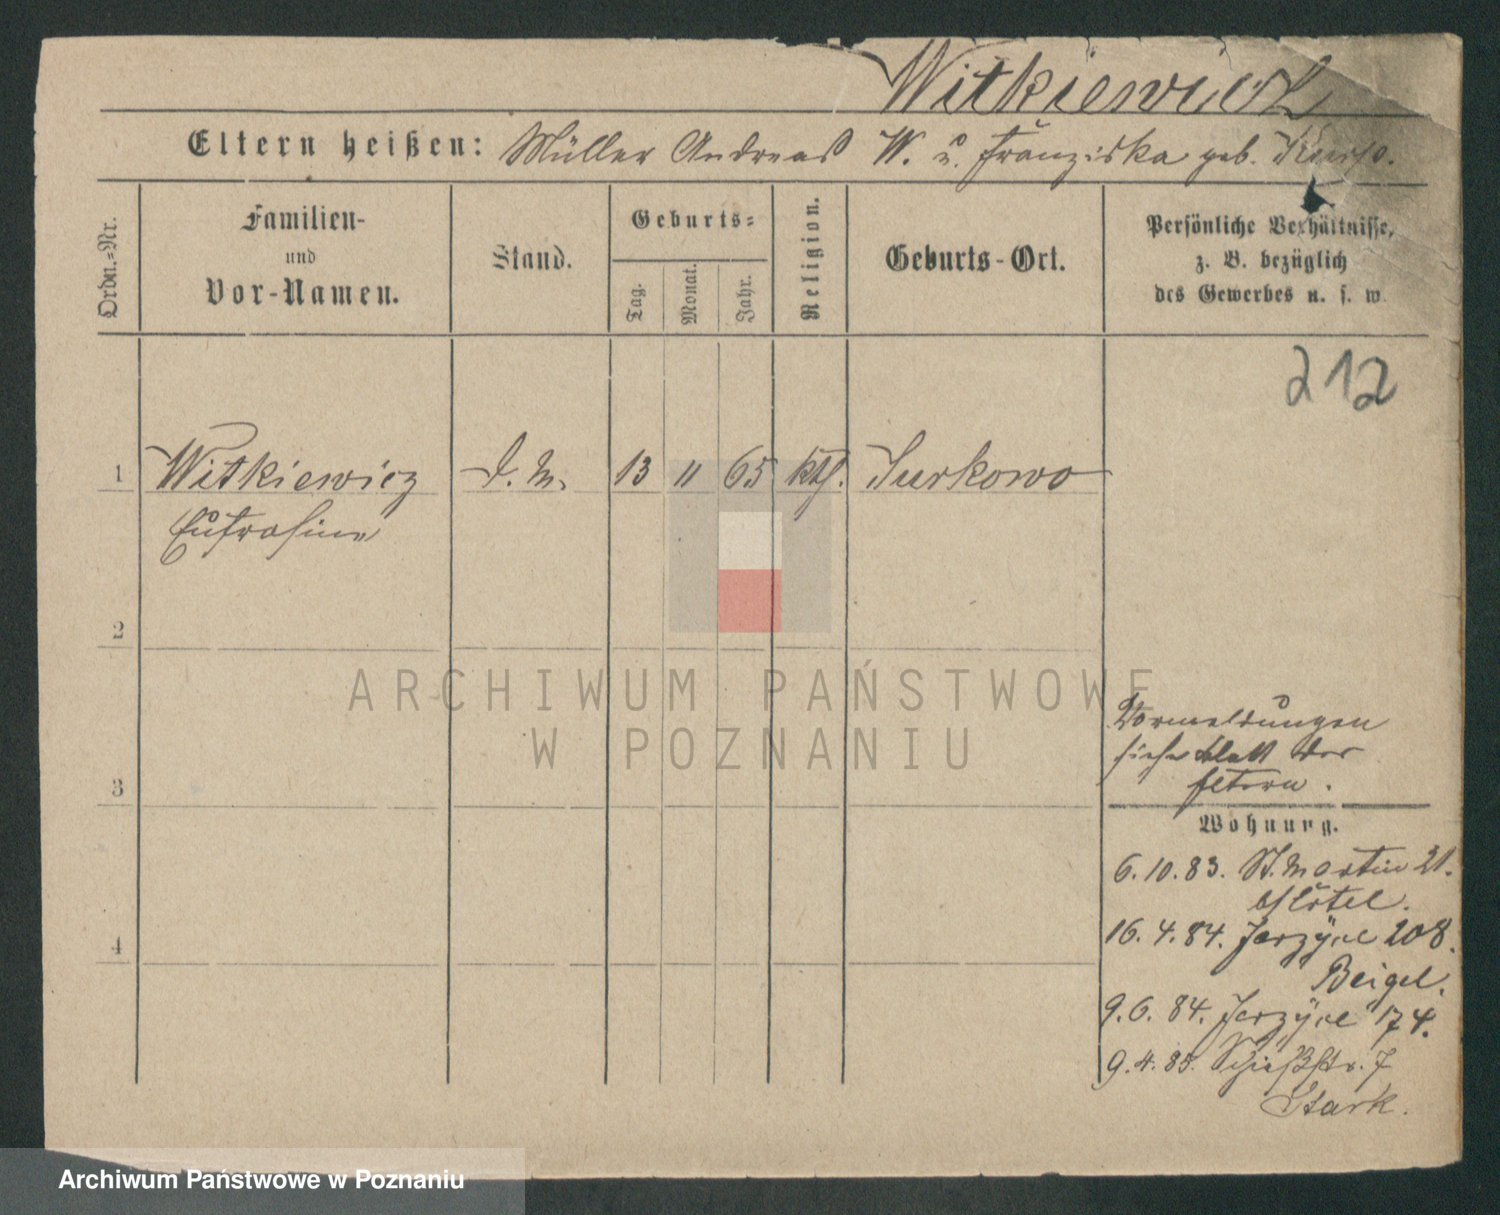 Witkiewicz
Eltern heißen: Müller Andreas W. u. Franziska geb.
Ordn.=Nr.
Familien-
und
Vor-Namen.
Stand.
Geburts=
Tag.
Monat.
Jahr.
Religion.
Geburts-Ort.
Persönliche Verhältnisse,
z. B. bezüglich
des Gewerbes u. s. w.
212
1 Witkiewicz d. M. 13 11 65 kth. Surkowo
Eufrosine
2
3
4
ARCHIWUM PAŃSTWOWE
W POZNANIU
Vormeldungen
siehe Blatt der
Eltern.
Wohnung.
6.10.83. St. Martin 21.
Hôtel.
16.4.84. Jerzÿce 208.
Beigel.
9.6.84. Jerzÿce 174.
9.4.85. Schießstr. 7
Stark.
Archiwum Państwowe w Poznaniu